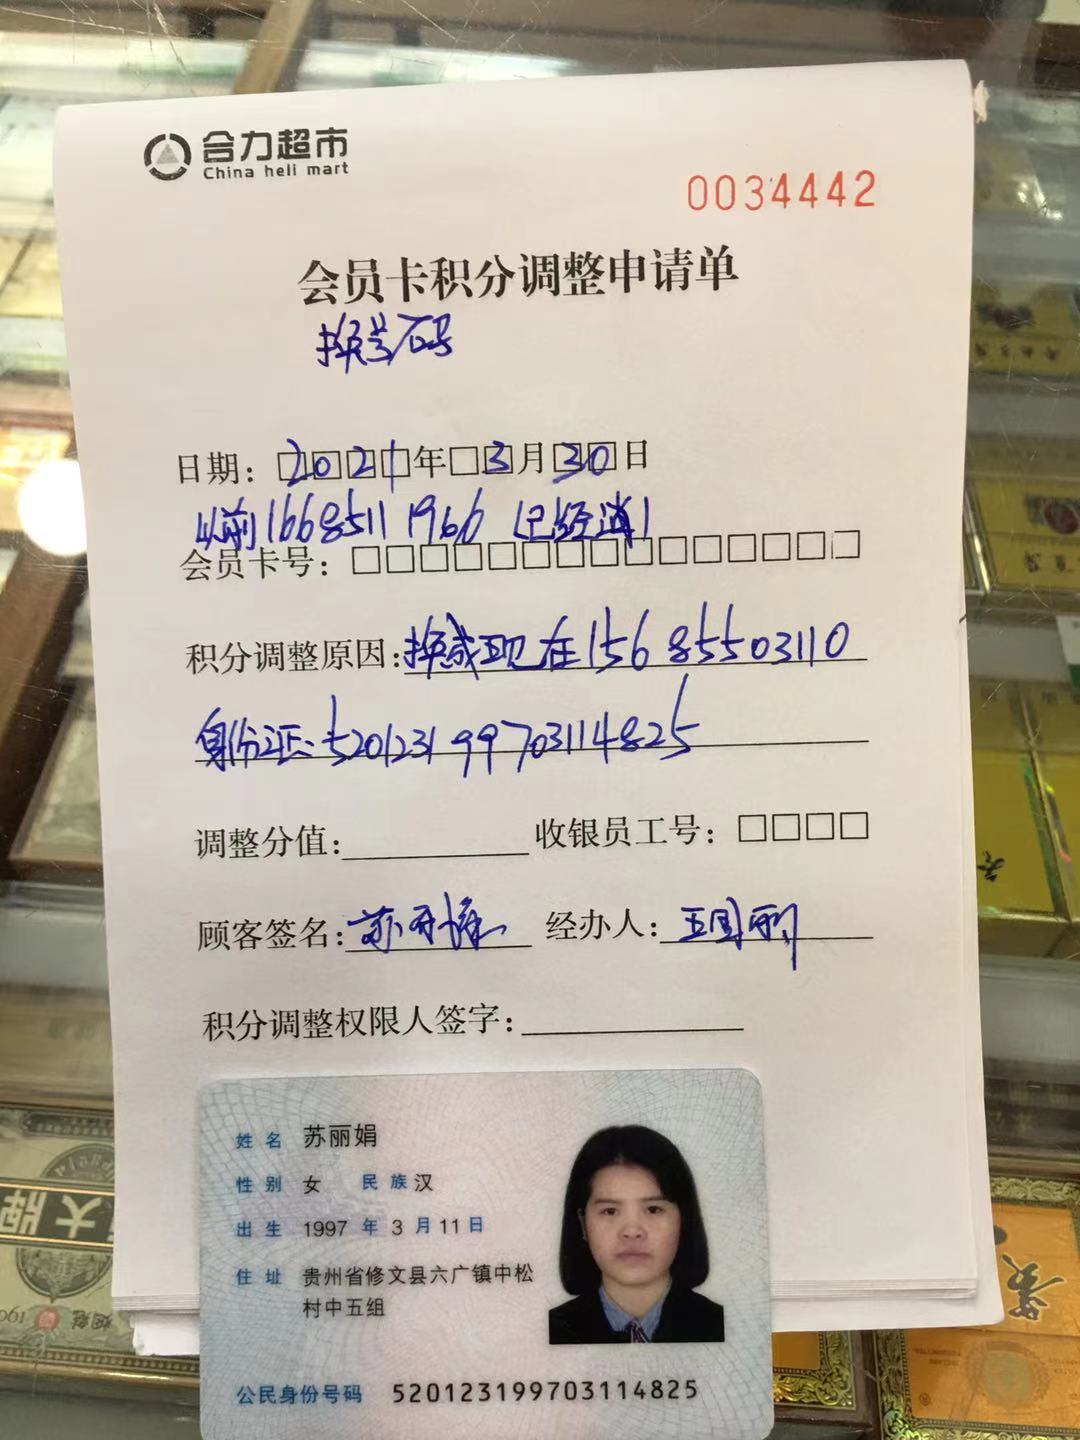 合力超市
China heli mart
0034442
会员卡积分调整申请单
换号码
日期：2021年 3月30日
以前16685111966（已经消）
会员卡号：
积分调整原因：换成现在15685503110
身份证：520123199703114825
调整分值： 收银员工号：
顾客签名：苏丽娟 经办人：王国丽
积分调整权限人签字：
姓名 苏丽娟
性别 女 民族 汉
出生 1997 年 3 月 11 日
住址 贵州省修文县六广镇中松
村中五组
公民身份号码 520123199703114825
大牌